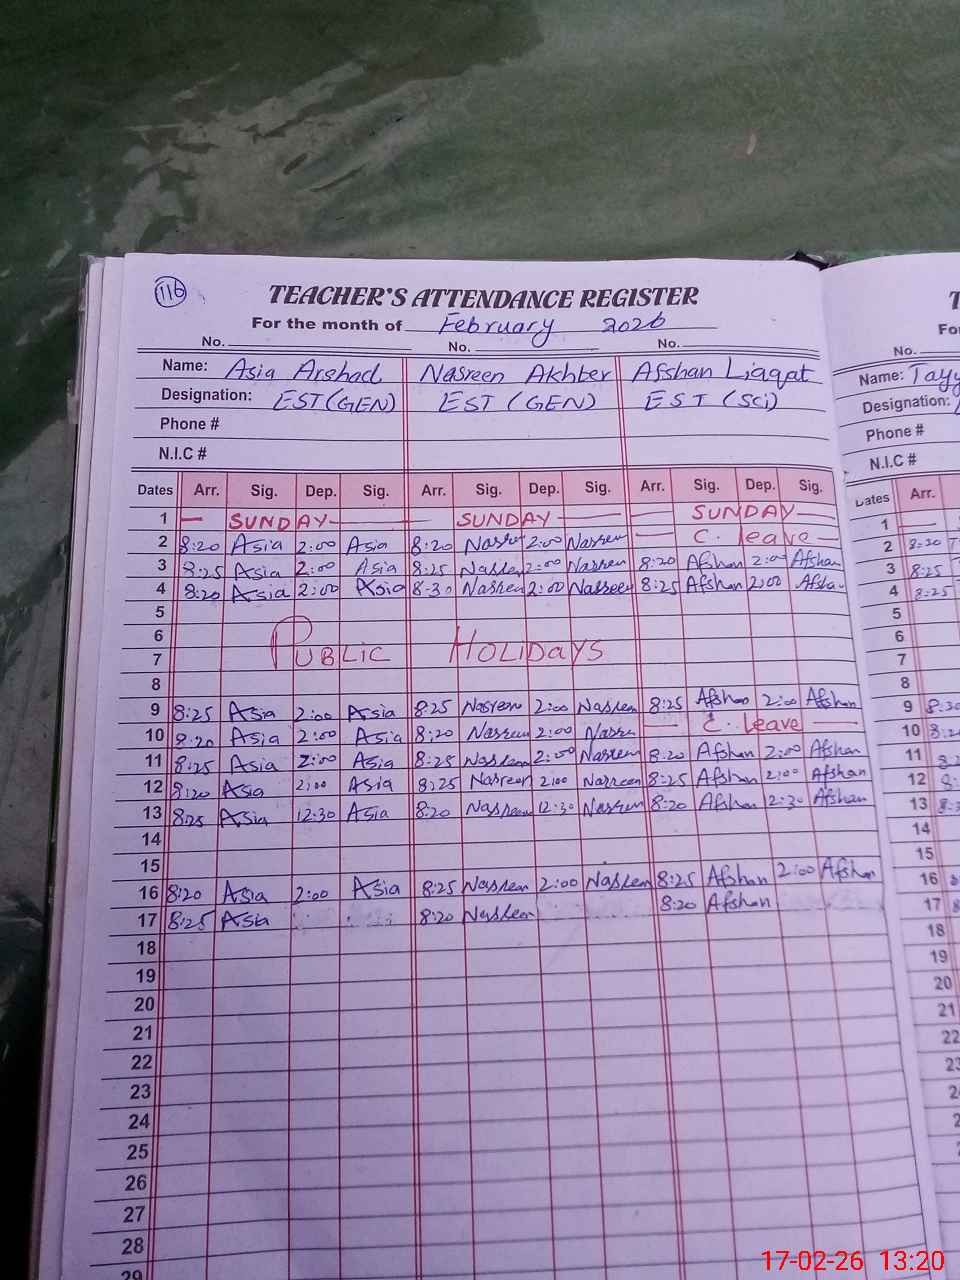 116
TEACHER'S ATTENDANCE REGISTER
For the month of February 2026
No. No. No.
Name: Asia Arshad Nasreen Akhter Afshan Liaqat
Designation: EST (GEN) EST (GEN) EST (Sci)
Phone #
N.I.C #
Dates Arr. Sig. Dep. Sig. Arr. Sig. Dep. Sig. Arr. Sig. Dep. Sig.
1 — SUNDAY — SUNDAY — SUNDAY —
2 8:20 Asia 2:00 Asia 8:20 Nasreen 2:00 Nasreen — C. leave —
3 8:25 Asia 2:00 Asia 8:25 Nasreen 2:00 Nasreen 8:20 Afshan 2:00 Afshan
4 8:20 Asia 2:00 Asia 8:30 Nasreen 2:00 Nasreen 8:25 Afshan 2:00 Afshan
5
6
7 PUBLIC HOLIDAYS
8
9 8:25 Asia 2:00 Asia 8:25 Nasreen 2:00 Nasreen 8:25 Afshan 2:00 Afshan
10 8:20 Asia 2:00 Asia 8:20 Nasreen 2:00 Nasreen — C. leave —
11 8:25 Asia 2:00 Asia 8:25 Nasreen 2:00 Nasreen 8:20 Afshan 2:00 Afshan
12 8:20 Asia 2:00 Asia 8:25 Nasreen 2:00 Nasreen 8:25 Afshan 2:00 Afshan
13 8:25 Asia 12:30 Asia 8:20 Nasreen 12:30 Nasreen 8:20 Afshan 2:30 Afshan
14
15
16 8:20 Asia 2:00 Asia 8:25 Nasreen 2:00 Nasreen 8:25 Afshan 2:00 Afshan
17 8:25 Asia 8:20 Nasreen 8:20 Afshan
18
19
20
21
22
23
24
25
26
27
28
29
No.
Name: Tayy
Designation:
Phone #
N.I.C #
Dates Arr.
1
2 8:30
3 8:25
4 8:25
5
6
7
8
9 8:30
10
11
12
13
14
15
16
17
18
19
20
21
22
17-02-26 13:20